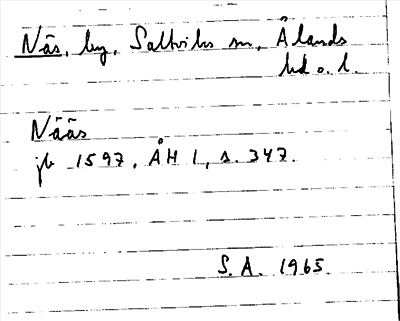 Näs, by, Saltviks sn, Ålands
hd o. l.
Nääs
jb 1597, ÅH 1, s. 347.
S.A. 1965.